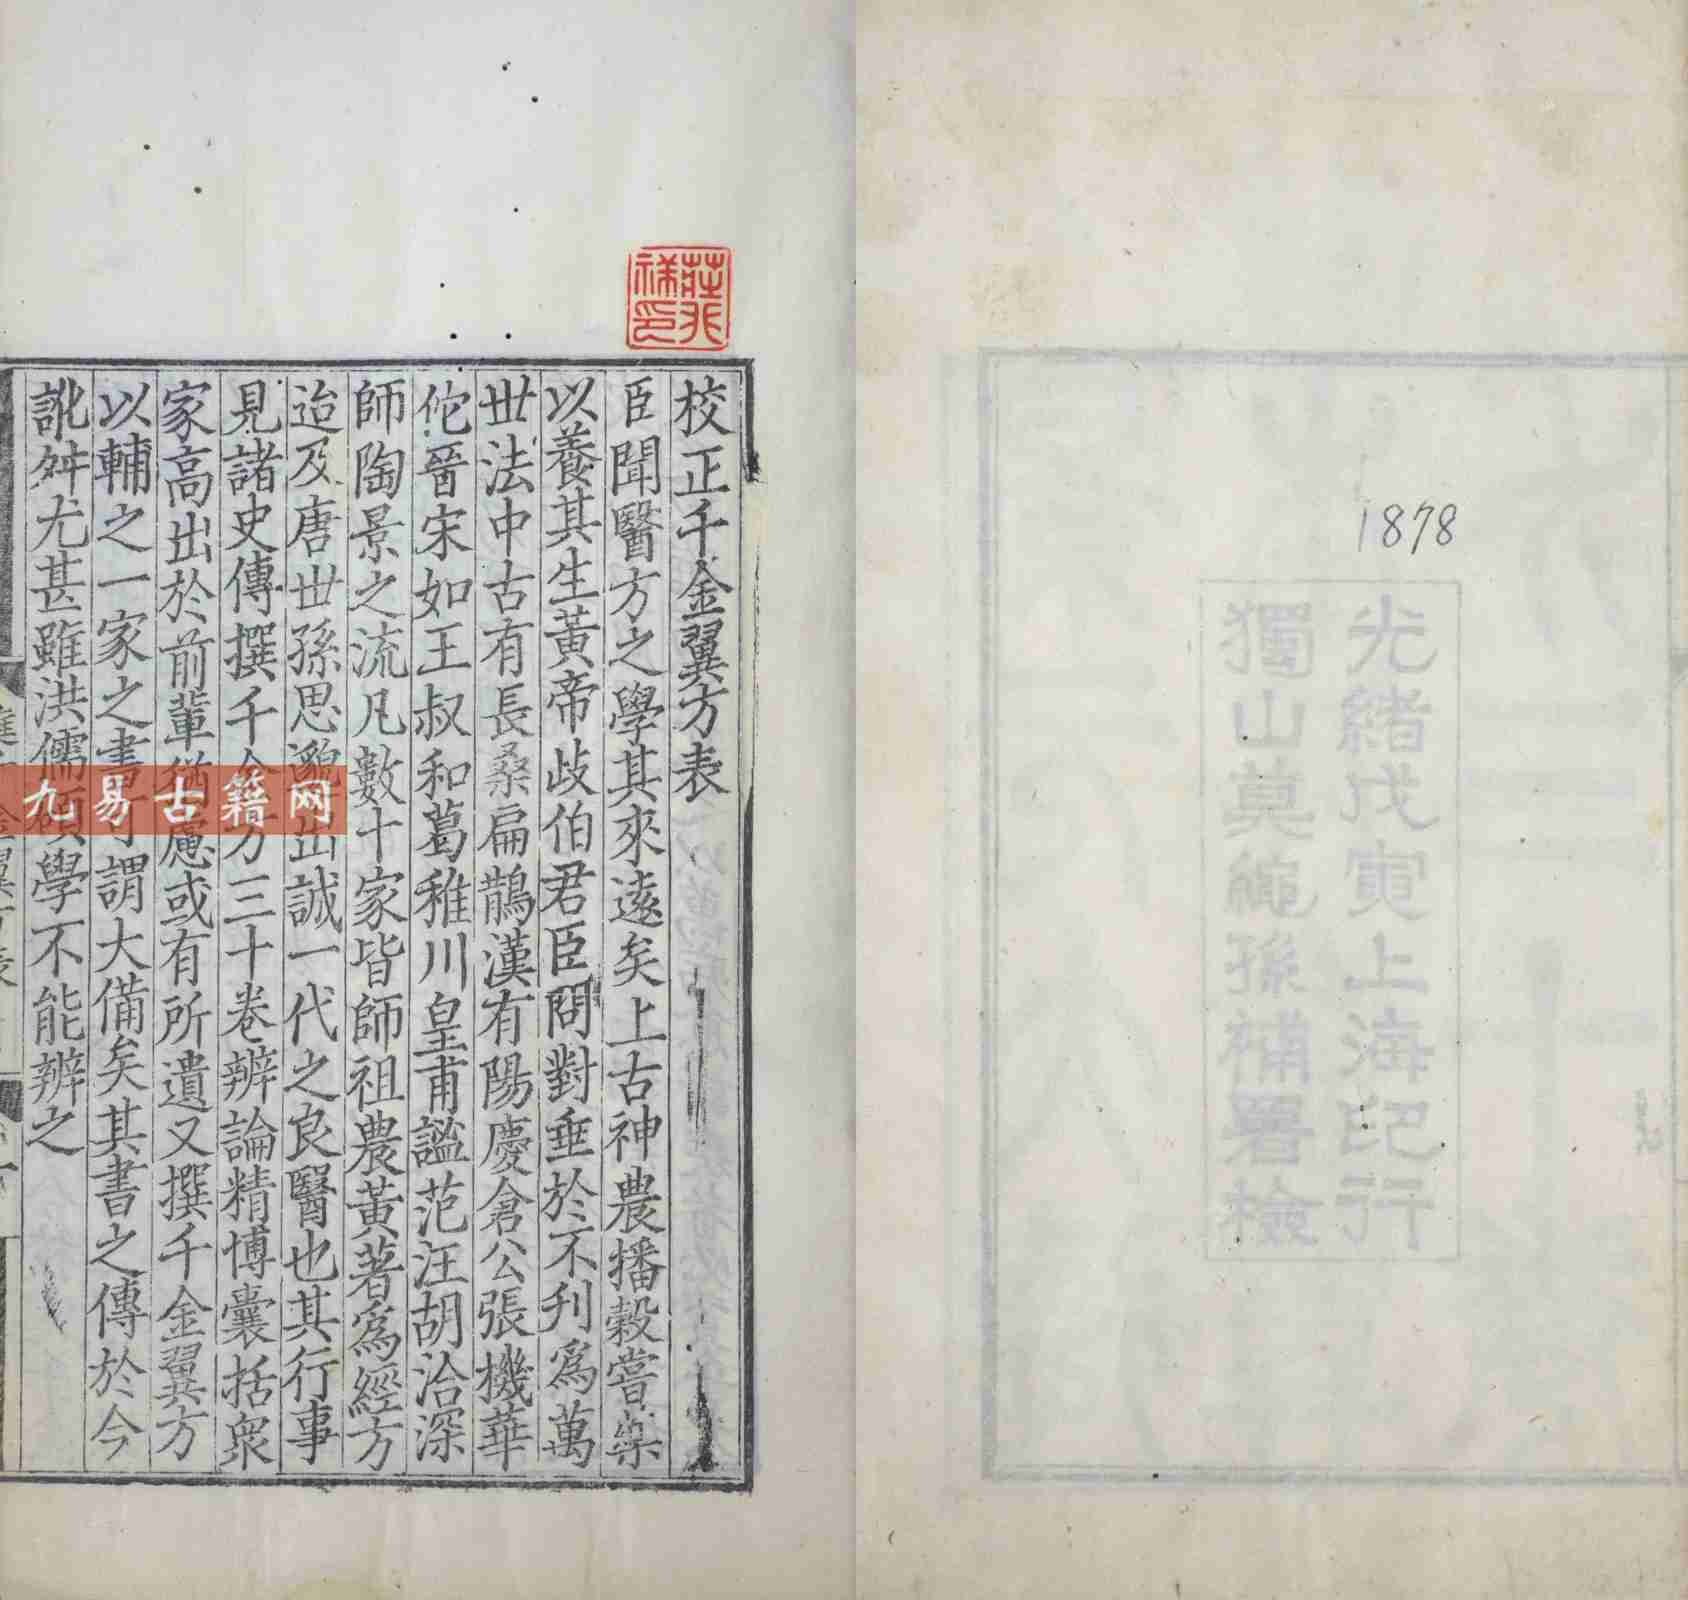 1878
光緒戊寅上海印行
獨山莫繩孫補署檢
校正千金翼方表
臣聞醫方之學其來遠矣上古神農播穀嘗藥
以養其生黃帝歧伯君臣問對垂於不刋爲萬
世法中古有長桑扁鵲漢有陽慶倉公張機華
佗晉宋如王叔和葛稚川皇甫謐范汪胡洽深
師陶景之流凡數十家皆師祖農黃著爲經方
迨及唐世孫思邈出誠一代之良醫也其行事
見諸史傳撰千金方三十卷辨論精博囊括衆
家高出於前輩猶慮或有所遺又撰千金翼方
以輔之一家之書可謂大備矣其書之傳於今
訛舛尤甚雖洪儒碩學不能辨之
九易古籍网